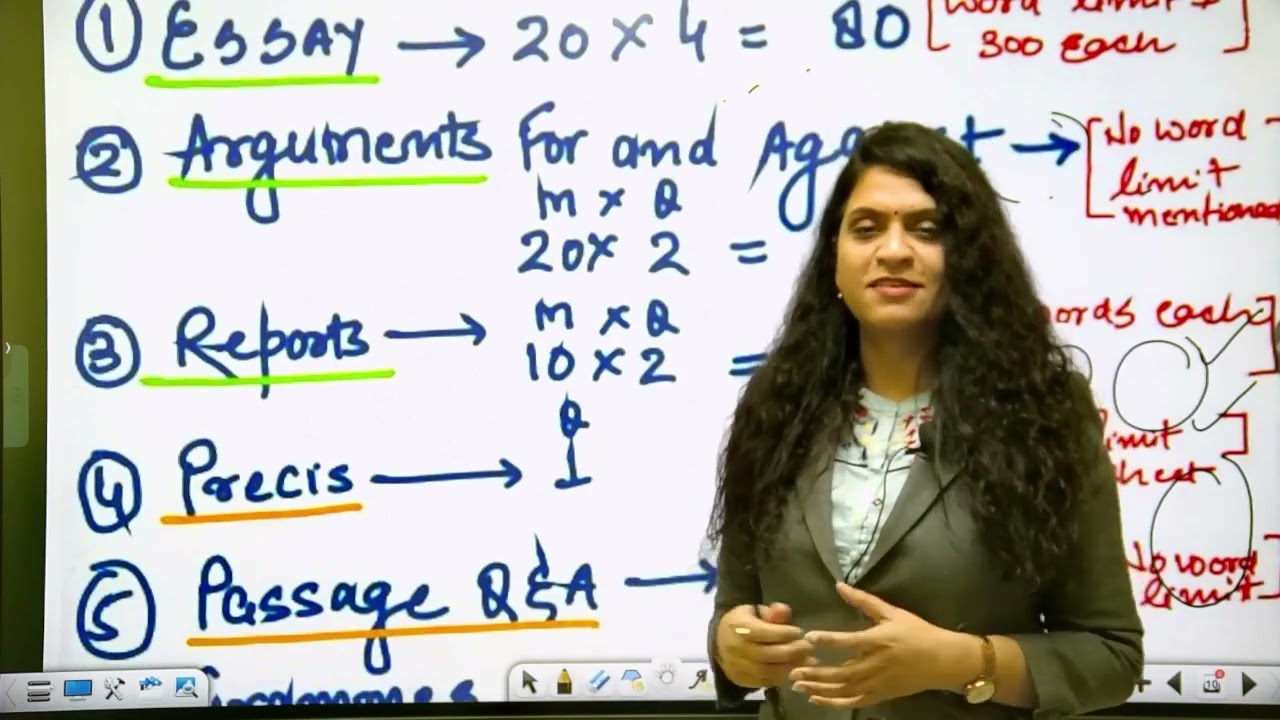 ① ESSAY → 20 × 4 = 80 [word limit
300 each]
② Arguments For and Against → [No word
limit
mentioned
M × Q
20 × 2 =
③ Reports → M × Q
10 × 2 =
words each]
④ Precis → Q
1
limit]
sheet
⑤ Passage Q&A →
No word
limit]
19